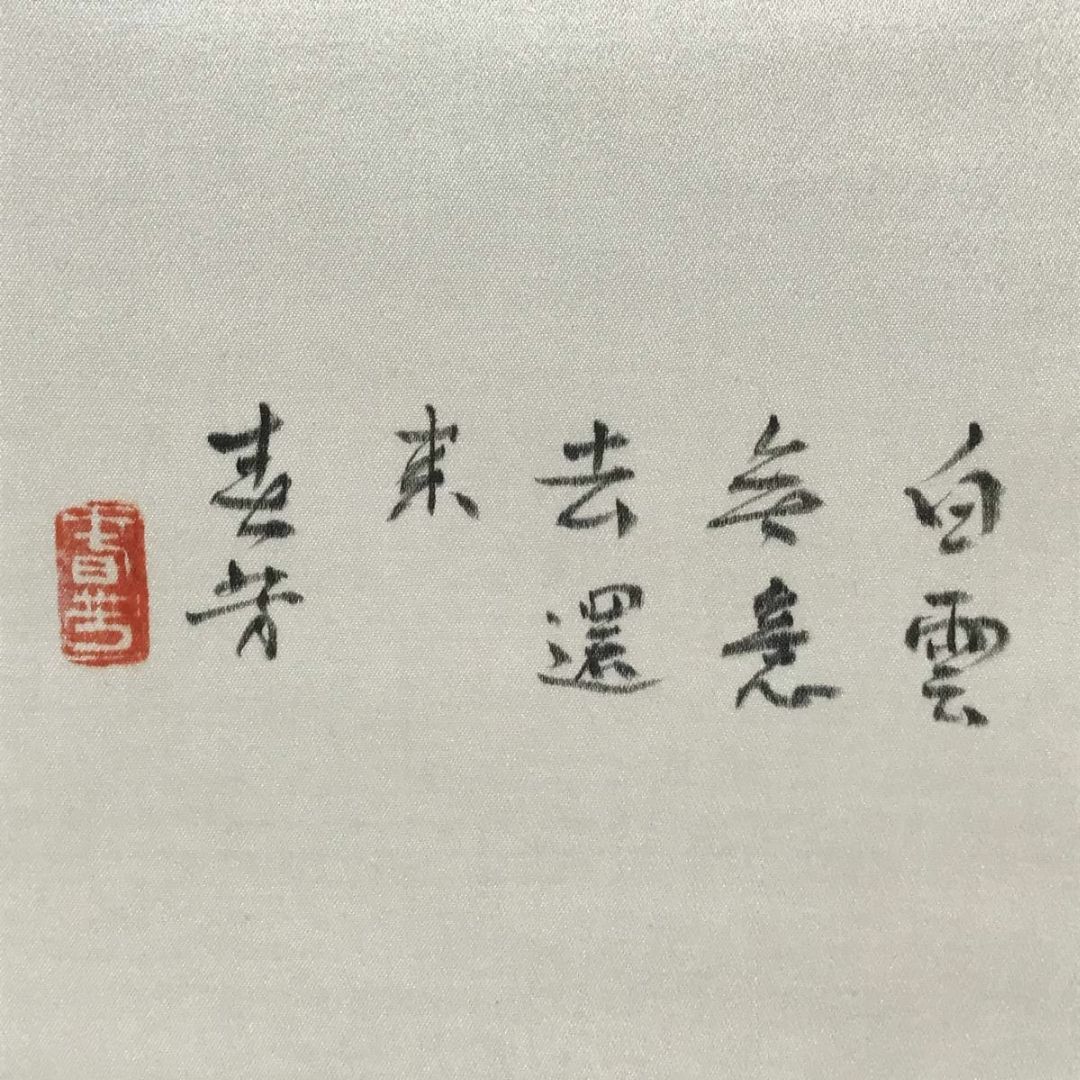 白雲
無意
去還
来
春芳
春芳